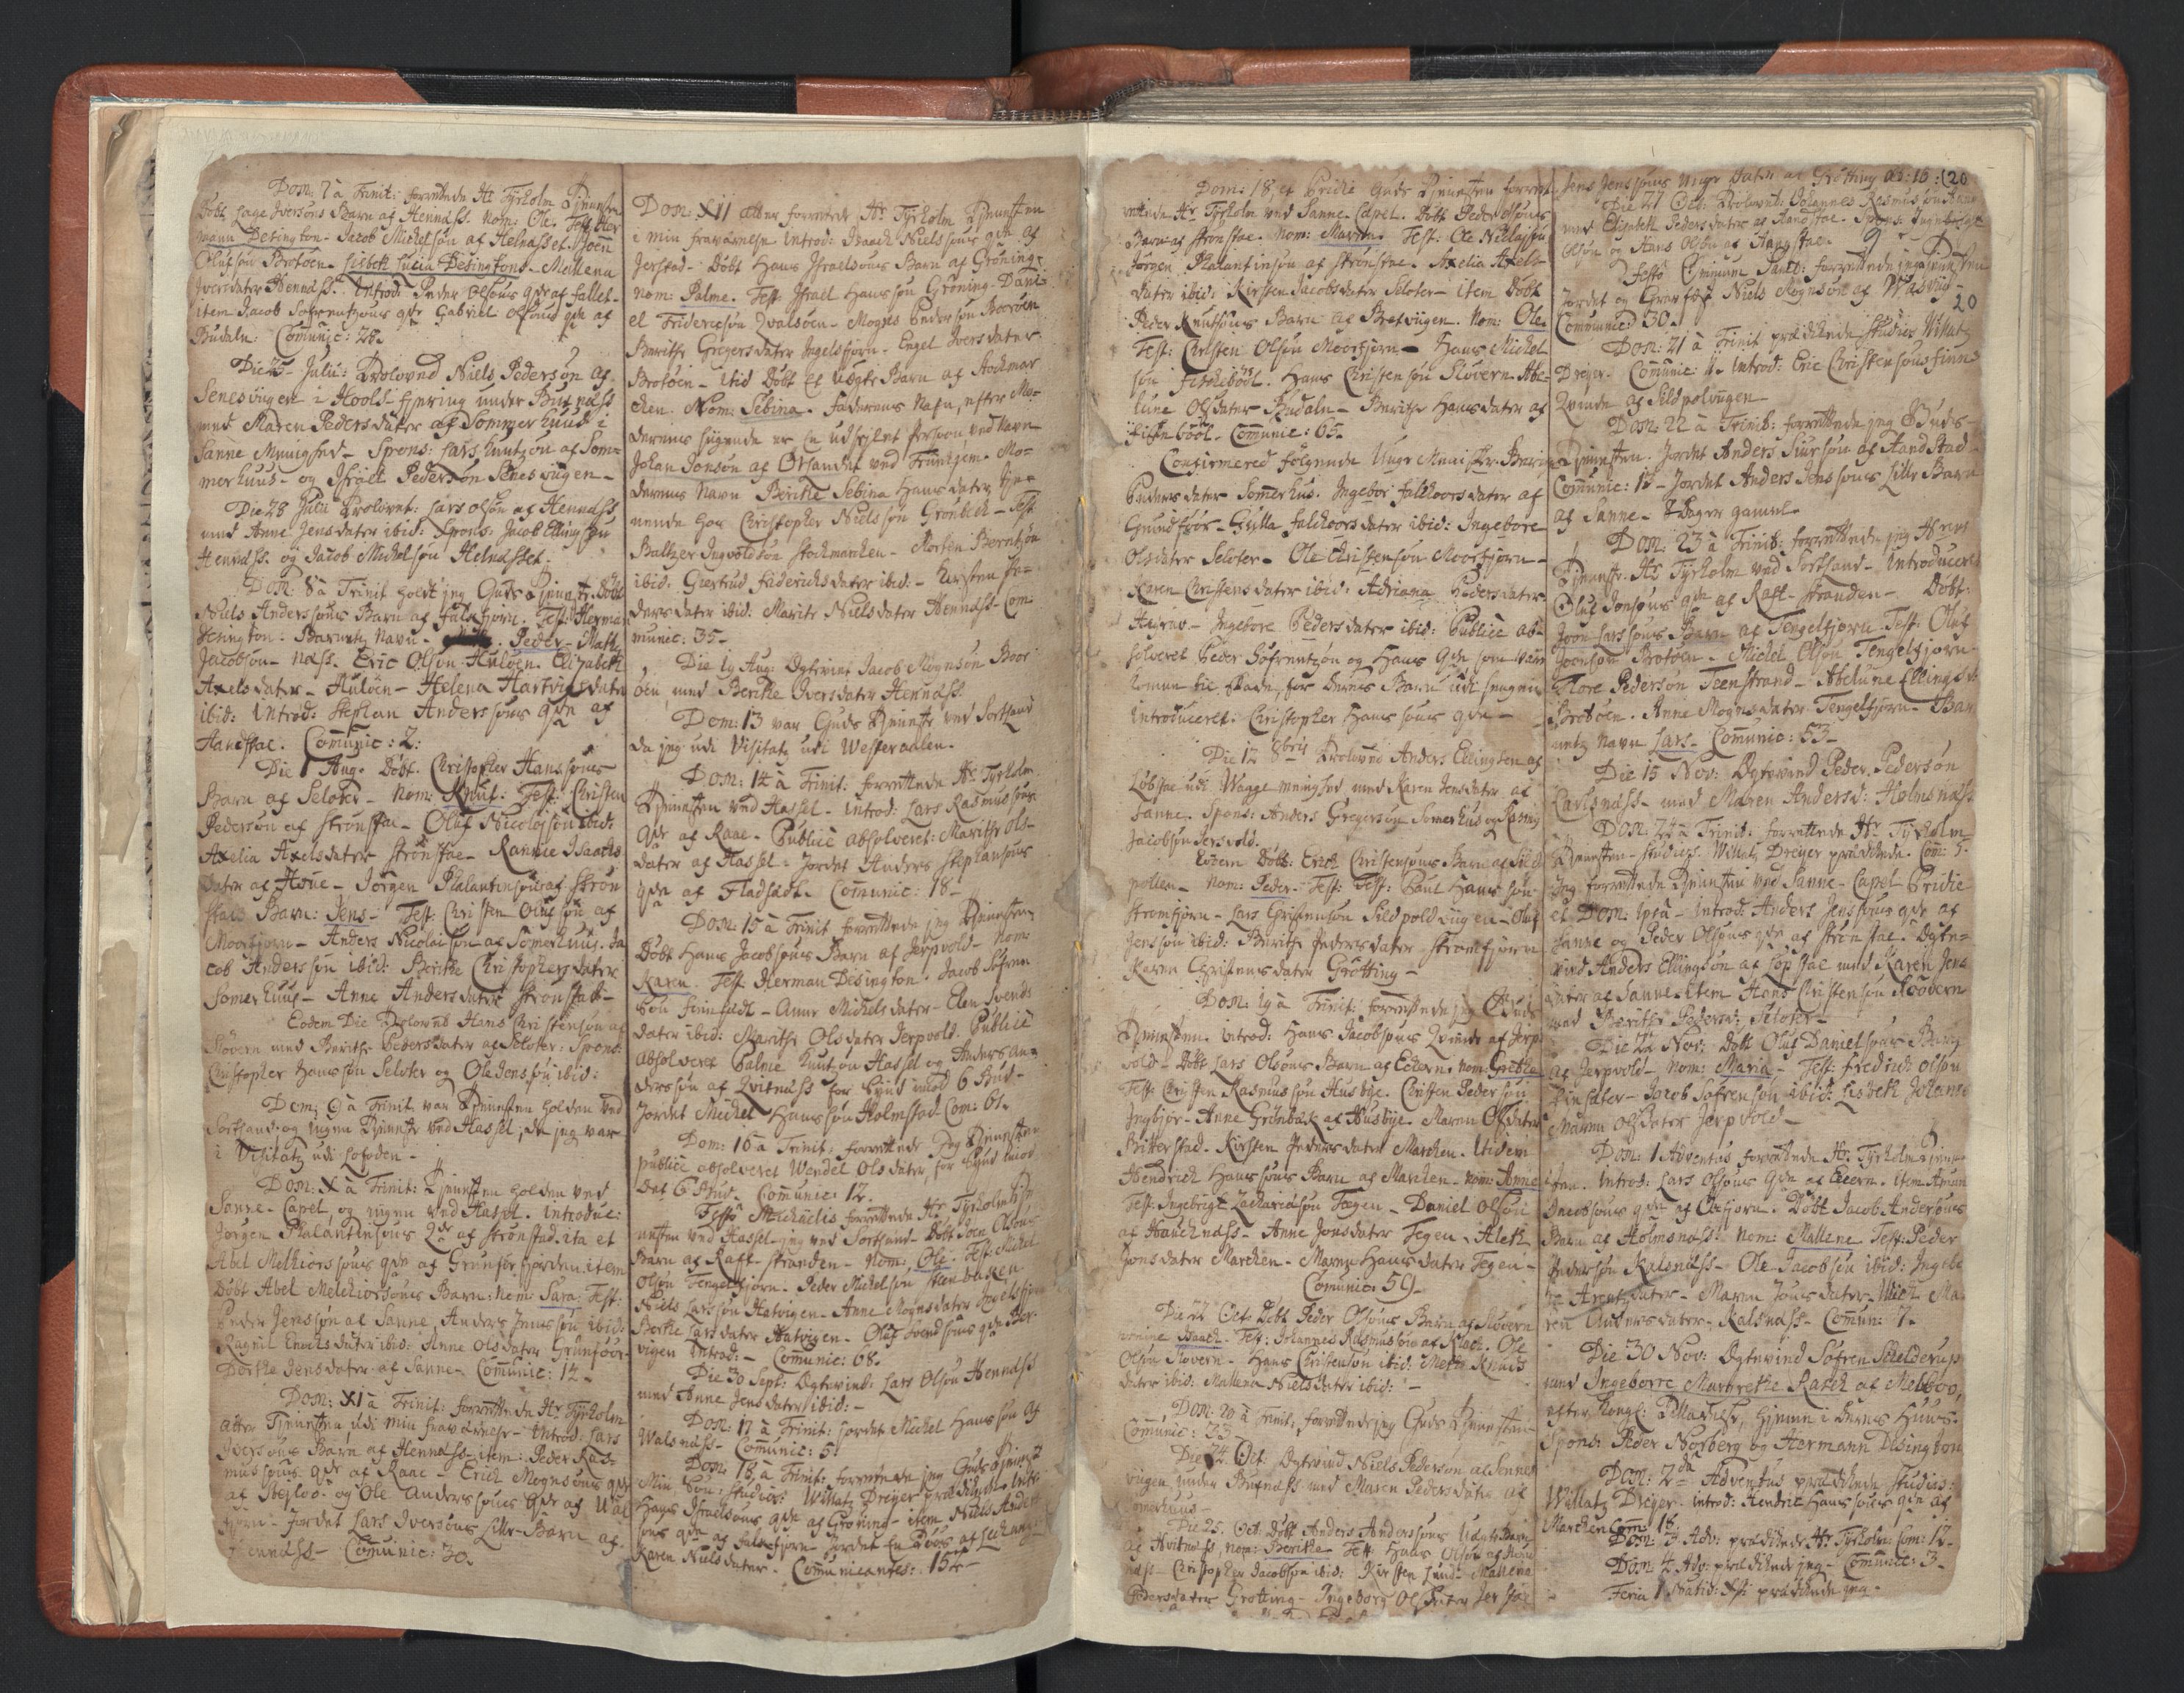 Dom: 7 à Trinit: forrettede Hr Tyrholm Tjenesten
Døbt Hage Iversøns Barn af Hennæss. Nom: Ole. Test: Her
mann Desington. Jacob Michelsøn af Helnæsset. Joen
Olufsøn Brotøen. Lisbeth Lucia Desingtons. Mallena
Iversdater Hennæss. Introd: Peder Olsøns qde af
item Jacob Søfrentzøns qde Gabriel Olsøns qde af
Budaln. Communic: 28.
Die 25 Julii: Troloved Niels Pedersøn af
Senesvigen i Hools fjering under Buxnæss
med Maren Pedersdater af Sommerhuus i
Sanne Meenighed. Spons: Lars Knutzøn af Som-
merhuus. og Israel Pedersøn Senesvigen.
Die 28 Julii Trolovet: Lars Olsøn af Hennæss
med Anne Jensdater ibid: Spons: Jacob Ellingsøn
Hennæss. og Jacob Michelsøn Helnæsset.
Dom: 8 à Trinit holdt jeg Guds Tjeneste. Døbt
Niels Anderssøns Barn af Falkfjorn. Test: Herman
Desington. Barnetz Navn. Peder. Math
Jacobsøn. Næss. Eric Olsøn Auløen. Elizabeth
Axelsdater. Auløen. Helena Hartvigsdater
ibid: Introd: Stephan Anderssøns qde af
Haandstae. Communic: 2:
Die 1 Aug. Døbt. Christopher Hanssøns
Barn af Seløter. Nom: Knut. Test: Christen
Pedersøn af Strønstae. Oluf Nicolaisøn ibid:
Axelia Axelsdater Strønstae. Rannie Isaachs
dater af Aune. Jørgen Palantinsøns af Strøn
stads Barn: Jens. Test: Christen Olufsøn af
Moorfjorn. Anders Nicolaisøn af Somerhuus. Ja
cob Anderssøn ibid: Berithe Christophersdater
Somerhuus. Anne Andersdater Strønstad.
Eodem Die Trolovet Hans Christensøn af
Sløvern med Berithe Pedersdater af Seløter: Spons:
Christopher Hanssøn Seløter og Ole Jenssøn ibid:
Dom: 9 à Trinit var Tjenesten holden ved
Sortland og ingen Tjeneste ved Hassel, da jeg var
i Visitatz udi Lofoden.
Dom: X à Trinit: Tjenesten holden ved
Sanne Capel, og ingen ved Hassel. Introduc:
Jørgen Palantinsøns qde af Strønstad. ita et
Abel Melkiorssøns qde af Grunførfjorden. item
Døbt Abel Melchiorsøns Barn: Nom: Sara. Test:
Peder Jenssøn af Sanne, Anders Jenssøn ibid:
Ragnil Enochsdater ibid: Anne Olsdater Grunføor
Dorthe Jensdater af Sanne. Communic: 12.
Dom: XI à Trinit: forrettede Hr Tyrholm
atter Tjenesten, udi min fraværelse. Introd: Lars
Iversøns Barn af Hennæss. item: Peder Ras-
mussøns qde af Raae. Erich Mognsøns qde
af Steiloe. og Ole Anderssøns qde af Ual
fjorn. Jordet Lars Iversøns Lille Barn af
Hennæss. Communic: 30.
Dom: XII atter forrettede Hr Tyrholm Tjenesten
i min fraværelse. Introd: Isaach Nielssøns qde af
Jerstad. Døbt Hans Israelsøns Barn af Grøning.
Nom: Palme. Test: Israel Hanssøn Grøning. Dani-
el Fridericsøn Qvalsøen. Mogns Pedersøn Boorøen
Berithe Gregersdater Ingelsfjorn. Engel Iversdater
Brotøen. Itid Døbt Et Uægte Barn af Stochmar
chen. Nom: Sebina. Faderens Nafn, efter Mo-
derens sigende er en udseglet Person ved Navn
Johan Jonsøn af Ørlandet ved Trundhjem. Mo-
derens Navn Berithe Sebina Hansdater tjen-
nende hos Christopher Nielssøn Grønbech. Test.
Baltzer Ingvoldsøn Stochmarchen. Morten Berntzøn
ibid. Giertrud Faderichsdater ibid: Kirsten Pe-
dersdater ibid. Marite Nielsdater Hennæss. Com
munic: 35.
Die 19 Aug: Egteviet Jacob Mognsøn Boor
øen, med Berithe Iversdater Hennæss.
Dom: 13 var Guds Tjeneste ved Sortland
da jeg udi Visitatz udi Westeraalen.
Dom: 14 à Trinit: forrettede Hr Tyrholm
Tjenesten ved Hassel. Introd: Lars Rasmussøns
qde af Raae. Publicè absolveret: Marithe Ols-
dater af Hassel. Jordet Anders Stephansøns
qde af Fladsædt. Communic: 18.
Dom: 15 à Trinit forrettede jeg Tjenesten
Døbt Hans Jacobsøns Barn af Jerpvold. Nom:
Karen. Test. Herman Desington. Jacob Søfren
søn Finnsædt. Anne Michelsdater. Elen Svends
dater ibid: Marithe Olsdater Jerpvold. Publicè
absolveret Palme Knutzøn Hassel og Anders An-
derssøn af Qvitnæss for Synd imod 6 Bud.
Jordet Michel Hanssøn Holmstad. Com: 61.
Dom: 16 à Trinit: forrettede Jeg Tjenesten
publicè absolveret Wendel Olsdater, for Synd imod
det 6 Bud. Communic: 12.
Festo Michaelis forrettede Hr Tyrholm Tje
nesten ved Hassel. jeg ved Sortland. Døbt Joen Olsøns
Barn af Raft-stranden. Nom: Ole. Test: Michel
Olsøn Tengelfjorn. Peder Michelsøn Steenbachen
Niels Larssøn Hatvigen. Anne Mognsdater Ingelsfjorn
Berthe Larsdater Hatvigen. Oluf Svendsøns qde Ber-
vigen Introd: Communic: 68.
Die 30 Sept: Egteviet: Lars Olsøn Hennæss
med Anne Jensdater ibid:
Dom: 17 à Trinit: jordet Michel Hanssøn af
Walsnæss. Communic: 5.
Dom: 18 à Trinit: forrettede jeg Guds Tjeneste
Min Søn: Studios: Willatz Dreyer prædikede. Intr:
Hans Israelsøns qde af Grøning. item Niels Anders
søns qde af Falkfjorn. Jordet En Pige af Lechang
Karen Nielsdater. Communicantes: 154
Dom: 18, et Pridie Guds Tjenesten forret
rettede Hr Tyrholm ved Sanne Capel. Døbt Peder Olsøns
Barn af Strønstae. Nom: Maren. Test: Ole Nielssøn
Jørgen Palantinsøn af Strønstae. Axelia Axels-
dater ibid: Kirsten Jacobsdater Seloter. item Døbt
Peder Knutsøns Barn af Bretviigen. Nom: Ole.
Test: Christen Olsøn Moorfjorn. Hans Michel
søn Fiskebøel. Hans Christensøn Sløvern. Abe-
lune Olsdater Budaln. Berithe Hansdater af
Fiskebøel. Communic: 65.
Confirmered følgende Unge Mennisker. Berit
Pedersdater Somerhus. Ingebor Falchoorsdater af
Grundføor. Gulla Falchoorsdater ibid: Ingebore
Olsdater Seloter. Ole Christensøn Moorfjorn.
Karen Christensdater ibid: Adriana Pedersdater
Hasraa. Ingebore Pedersdater ibid: Publicè ab-
solveret Peder Søfrentzøn og Hans qde som vare
komne til skade, for deres Barn udi sengen
introduceret: Christopher Hanssøns qde.
Die 12 8bris Trolovet Anders Ellingsen af
Løbstae udi Wagge meenighed, med Karen Jensdater af
Sanne. Spons: Anders Gregersøn Somerhus og Rasmus
Jacobsøn Jersvold.
Eodem Døbt: Erich Christensøns Barn af Sild
pollen. Nom: Peder. Test: Test: Paul Hanssøn
Stromfjorn. Lars Christensøn Sildpoldviigen. Oluf
Jenssøn ibid: Berithe Pedersdater Stromfjorn
Karen Christensdater Grøtting.
Dom: 19 à Trinit: forrettede jeg Guds
Tjenesten. Introd: Hans Jacobsøns Qvinde af Jerp
vold. Døbt Lars Olsøns Barn af Eedern. nom: Grethe
Test: Christen Rasmussøn Husbye. Christen Pedersøn
Ingbjør. Anne Grønbæk af Husbye. Maren Olsdater
Bitterstad. Kirsten Pedersdater Marchen. Itidem
Hendrich Hanssøns Barn af Marchen. Nom: Anne
Test: Ingebrigt Zachariæsøn Fagen. Daniel Olsøn
af Hauchnæss. Anne Jonsdater Tegen. Aleth
Jonsdater Marchen. Maren Hansdater Tegen.
Communic: 59.
Die 22 Oct: Døbt Peder Olsøns Barn af Sløvern
nomine Isaach. Test: Johannes Rasmussøn af Kløch. Ole
Olsøn Sløvern. Hans Christensøn ibid: Mette Knuds
dater ibid. Mallena Nielsdater ibid:
Dom: 20 à Trinit: forrettede jeg Guds Tjenesten
Communic: 33
Die 24 Oct. Egteviet Niels Pedersøn af Sennes
viigen under Buxnæss med Maren Pedersdater af
Somerhuus.
Die 25. Oct: Døbt Anders Anderssøns Uægte Barn
af Hvitnæss, nom: Berithe. Test: Hans Olsøn af Hou
næss. Christopher Jacobsøn ibid: Kirsten Lund. Mallena
Pedersdater Grøtting. Ingeborg Olsdater Jerstae
Jens Jenssøns Unge dater af Grøtting æt: 16: (20
Die 27 Oct. Trolovet: Johannes Rasmussøn Aune
med Elisabeth Pedersdater af Haandstae. Spons: Ingebrigt
Olsøn og Hans Olsøn af Haandstae.
Festo Omnium Sanct: forrettede jeg Tjenesten
Jordet og Graffæst Niels Mognsøn af Wasviig
20
Communic: 30.
Dom: 21 à Trinit prædikede Studios Willatz
Dreyer. Communic: 11. Introd: Eric Christensøns Finne
Qvinde af Sildpolviigen.
Dom: 22 à Trinit: forrettede jeg Guds
Tjenesten. Jordet Anders Siursøn af Haandstad
Communic: 15. Jordet Anders Jenssøns Lille Barn
af Sanne. 7 dager gammel.
Dom: 23 à Trinit: forrettede jeg
Tjeneste. Hr Tyrholm ved Sortland. Introduceret
Oluf Jonsøns qde af Raft-stranden. Døbt:
Joen Larssøns Barn af Tengelfjorn. Test: Oluf
Joensøn Brotøen. Michel Olsøn Tengelfjorn.
Tore Pedersøn Teenstrand. Abelune Ellingsd:
Brotøen. Anne Mognsdater Tengelfjorn. Bar
netz Navn Lars. Communic: 53.
Die 15 Nov: Egteviet Peder Pedersøn
Carlsnæss. med Maren Andersd: Holmsnæss
Dom: 24 à Trinit: forrettede Hr Tyrholm
Tjenesten. Studios. Willatz Dreyer prædikede. Com: 5.
Jeg forrettede Tjenesten ved Sanne Capel Pridie
et Dom: ipsâ. Introd: Anders Jenssøns qde af
Sanne og Peder Olsøns qde af Strønstae. Egte-
viet Anders Ellingsøn af Løpstae med Karen Jens
dater af Sanne. item Hans Christensøn Sløvern
med Berithe Pedersd: Seloter.
Die 22 Nov: Døbt Oluf Danielsøns Barn
af Jerpvold. Nom: Maria. Test: Fredrich Olsøn
Jacob Søfrensøn ibid: Lisbeth Johans
Maren Olsdater Jerpvold.
Dom: 1 Adventus forrettede Hr Tyrholm Tjene
sten. Introd: Lars Olsøns qde af Edern. item Amun
Jacobsøns qde af Oxfjorn. Døbt Jacob Andersøns
Barn af Holmsnæss. Nom: Mallene. Test: Peder
Pedersøn Kalsnæss. Ole Jacobsøn ibid: Ingeb:
Arentzdater. Maren Jonsdater. Ma-
ren Andersdater. Kalsnæss. Commun: 7.
Die 30 Nov: Egteviet Søfren Schelderup
med Ingeborre Margrethe Rasch af Melboe,
efter Kongl: Tilladelse, hjemme i deres Huus.
Spons: Peder Norberg og Hermann Desington
Dom: 2da Adventus prædikede Studios:
Willatz Dreyer. Introd: Hendric Hanssøns qde af
Marchen. Com: 18.
Dom: 3 Adv: prædikede Hr Tyrholm: Com: 12.
Dom: 4 Adv: prædikede jeg. Communic: 3.
Feria 1 Natiū: Xsti prædikede jeg.